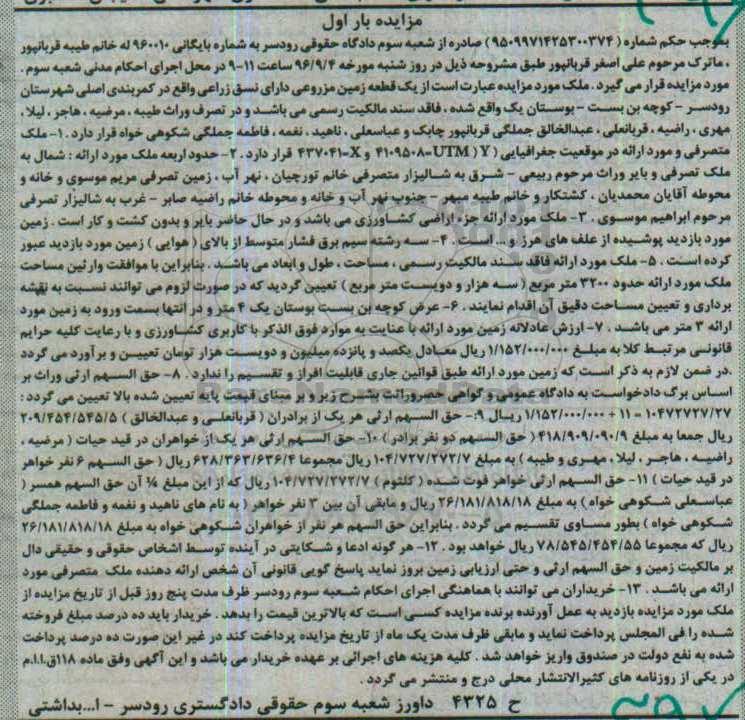 مزایده بار اول
بموجب حکم شماره ( ۹۵۰۹۹۷۱۴۲۵۳۰۰۳۷۴ ) صادره از شعبه سوم دادگاه حقوقی رودسر به شماره بایگانی ۹۶۰۰۱۰ له خانم طیبه قربانپور
، ماترک مرحوم علی اصغر قربانپور طبق مشروحه ذیل در روز شنبه مورخه ۹۶/۹/۴ ساعت ۱۱-۹ در محل اجرای احکام مدنی شعبه سوم .
مورد مزایده قرار می گیرد . ملک مورد مزایده عبارت است از یک قطعه زمین مزروعی دارای نسق زراعی واقع در کمربندی اصلی شهرستان
رودسر – کوچه بن بست – بوستان یک واقع شده ، فاقد سند مالکیت رسمی می باشد و در تصرف وراث طیبه ، مرضیه ، هاجر ، لیلا ،
مهری ، راضیه ، قربانعلی ، عبدالخالق جملگی قربانپور چابک و عباسعلی ، ناهید ، نغمه ، فاطمه جملگی شکوهی خواه قرار دارد . ۱- ملک
متصرفی و مورد ارائه در موقعیت جغرافیایی ( UTM ) Y=۴۱۰۹۵۰۸ و X=۴۳۷۰۴۱ قرار دارد . ۲- حدود اربعه ملک مورد ارائه : شمال به
ملک تصرفی و بایر وراث مرحوم ربیعی – شرق به شالیزار متصرفی خانم تورجیان ، نهر آب ، زمین تصرفی مریم موسوی و خانه و
محوطه آقایان محمدیان ، کشتکار و خانم طیبه مبهر – جنوب نهر آب و خانه و محوطه خانم راضیه صابر – غرب به شالیزار تصرفی
مرحوم ابراهیم موسوی . ۳- ملک مورد ارائه جزء اراضی کشاورزی می باشد و در حال حاضر بایر و بدون کشت و کار است . زمین
مورد بازدید پوشیده از علف های هرز و ... است . ۴- سه رشته سیم برق فشار متوسط از بالای ( هوایی ) زمین مورد بازدید عبور
کرده است . ۵- ملک مورد ارائه فاقد سند مالکیت رسمی ، مساحت ، طول و ابعاد می باشد . بنابراین با موافقت وارثین مساحت
ملک مورد ارائه حدود ۳۲۰۰ متر مربع ( سه هزار و دویست متر مربع ) تعیین گردید که در صورت لزوم می توانند نسبت به نقشه
برداری و تعیین مساحت دقیق آن اقدام نمایند . ۶- عرض کوچه بن بست بوستان یک ۴ متر و در انتها بسمت ورود به زمین مورد
ارائه ۳ متر می باشد . ۷- ارزش عادلانه زمین مورد ارائه با عنایت به موارد فوق الذکر با کاربری کشاورزی و با رعایت کلیه حرایم
قانونی مرتبط کلا به مبلغ ۱/۱۵۲/۰۰۰/۰۰۰ ریال معادل یکصد و پانزده میلیون و دویست هزار تومان تعیین و برآورد می گردد
.در ضمن لازم به ذکر است که زمین مورد ارائه طبق قوانین جاری قابلیت افراز و تقسیم را ندارد . ۸- حق السهم ارثی وراث بر
اساس برگ دادخواست به دادگاه عمومی و گواهی حصروراثت بشرح زیر و بر مبنای قیمت پایه تعیین شده بالا تعیین می گردد :
۱۰۴۷۲۷۲۷/۲۷ = ۱۱ ÷ ۱/۱۵۲/۰۰۰/۰۰۰ ریال ۹:- حق السهم ارثی هر یک از برادران ( قربانعلی و عبدالخالق ) ۲۰۹/۴۵۴/۵۴۵/۵
ریال جمعا به مبلغ ۴۱۸/۹۰۹/۰۹۰/۹ ( حق السهم دو نفر برادر ) ۱۰- حق السهم ارثی هر یک از خواهران در قید حیات ( مرضیه ،
راضیه ، هاجر ، لیلا ، مهری و طیبه ) به مبلغ ۱۰۴/۷۲۷/۲۷۲/۷ ریال مجموعا ۶۲۸/۳۶۳/۶۳۶/۴ ریال ( حق السهم ۶ نفر خواهر
در قید حیات ) ۱۱- حق السهم ارثی خواهر فوت شده ( کلثوم ) ۱۰۴/۷۲۷/۲۷۲/۷ ریال که از این مبلغ ¼ آن حق السهم همسر (
عباسعلی شکوهی خواه ) به مبلغ ۲۶/۱۸۱/۸۱۸/۱۸ ریال و مابقی آن بین ۳ نفر خواهر ( به نام های ناهید و نغمه و فاطمه جملگی
شکوهی خواه ) بطور مساوی تقسیم می گردد . بنابراین حق السهم هر نفر از خواهران شکوهی خواه به مبلغ ۲۶/۱۸۱/۸۱۸/۱۸
ریال که مجموعا ۷۸/۵۴۵/۴۵۴/۵۵ ریال خواهد بود . ۱۲- هر گونه ادعا و شکایتی در آینده توسط اشخاص حقوقی و حقیقی دال
بر مالکیت زمین و حق السهم ارثی و حتی ارزیابی زمین بروز نماید پاسخ گویی قانونی آن شخص ارائه دهنده ملک متصرفی مورد
ارائه می باشد . ۱۳- خریداران می توانند با هماهنگی اجرای احکام شعبه سوم رودسر ظرف مدت پنج روز قبل از تاریخ مزایده از
ملک مورد مزایده بازدید به عمل آورنده برنده مزایده کسی است که بالاترین قیمت را بدهد . خریدار باید ده درصد مبلغ فروخته
شده را فی المجلس پرداخت نماید و مابقی ظرف مدت یک ماه از تاریخ مزایده پرداخت کند در غیر این صورت ده درصد پرداخت
شده به نفع دولت در صندوق واریز خواهد شد . کلیه هزینه های اجرائی بر عهده خریدار می باشد و این آگهی وفق ماده ۱۱۸ق.ا.ا.م
در یکی از روزنامه های کثیرالانتشار محلی درج و منتشر می گردد .
ح ۴۳۲۵ داورز شعبه سوم حقوقی دادگستری رودسر – ا...بداشتی